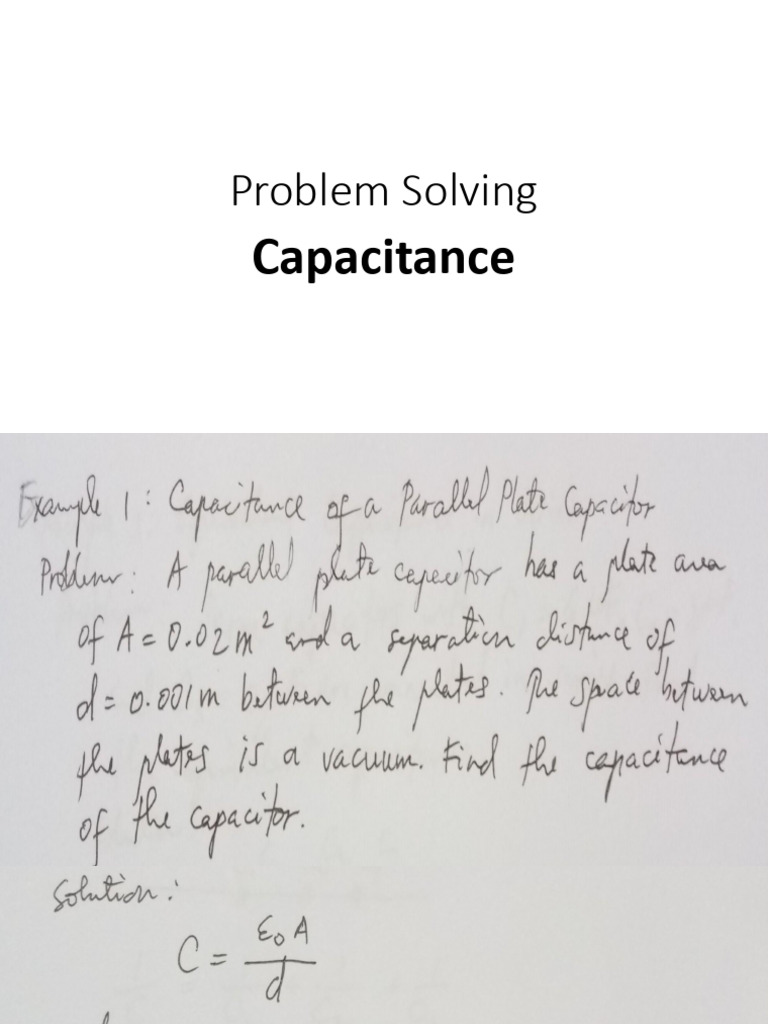 Problem Solving
Capacitance
Example 1: Capacitance of a Parallel Plate Capacitor
Problem: A parallel plate capacitor has a plate area
of A = 0.02 m² and a separation distance of
d = 0.001 m between the plates. The space between
the plates is a vacuum. Find the capacitance
of the capacitor.
Solution:
C = ε₀ A
d